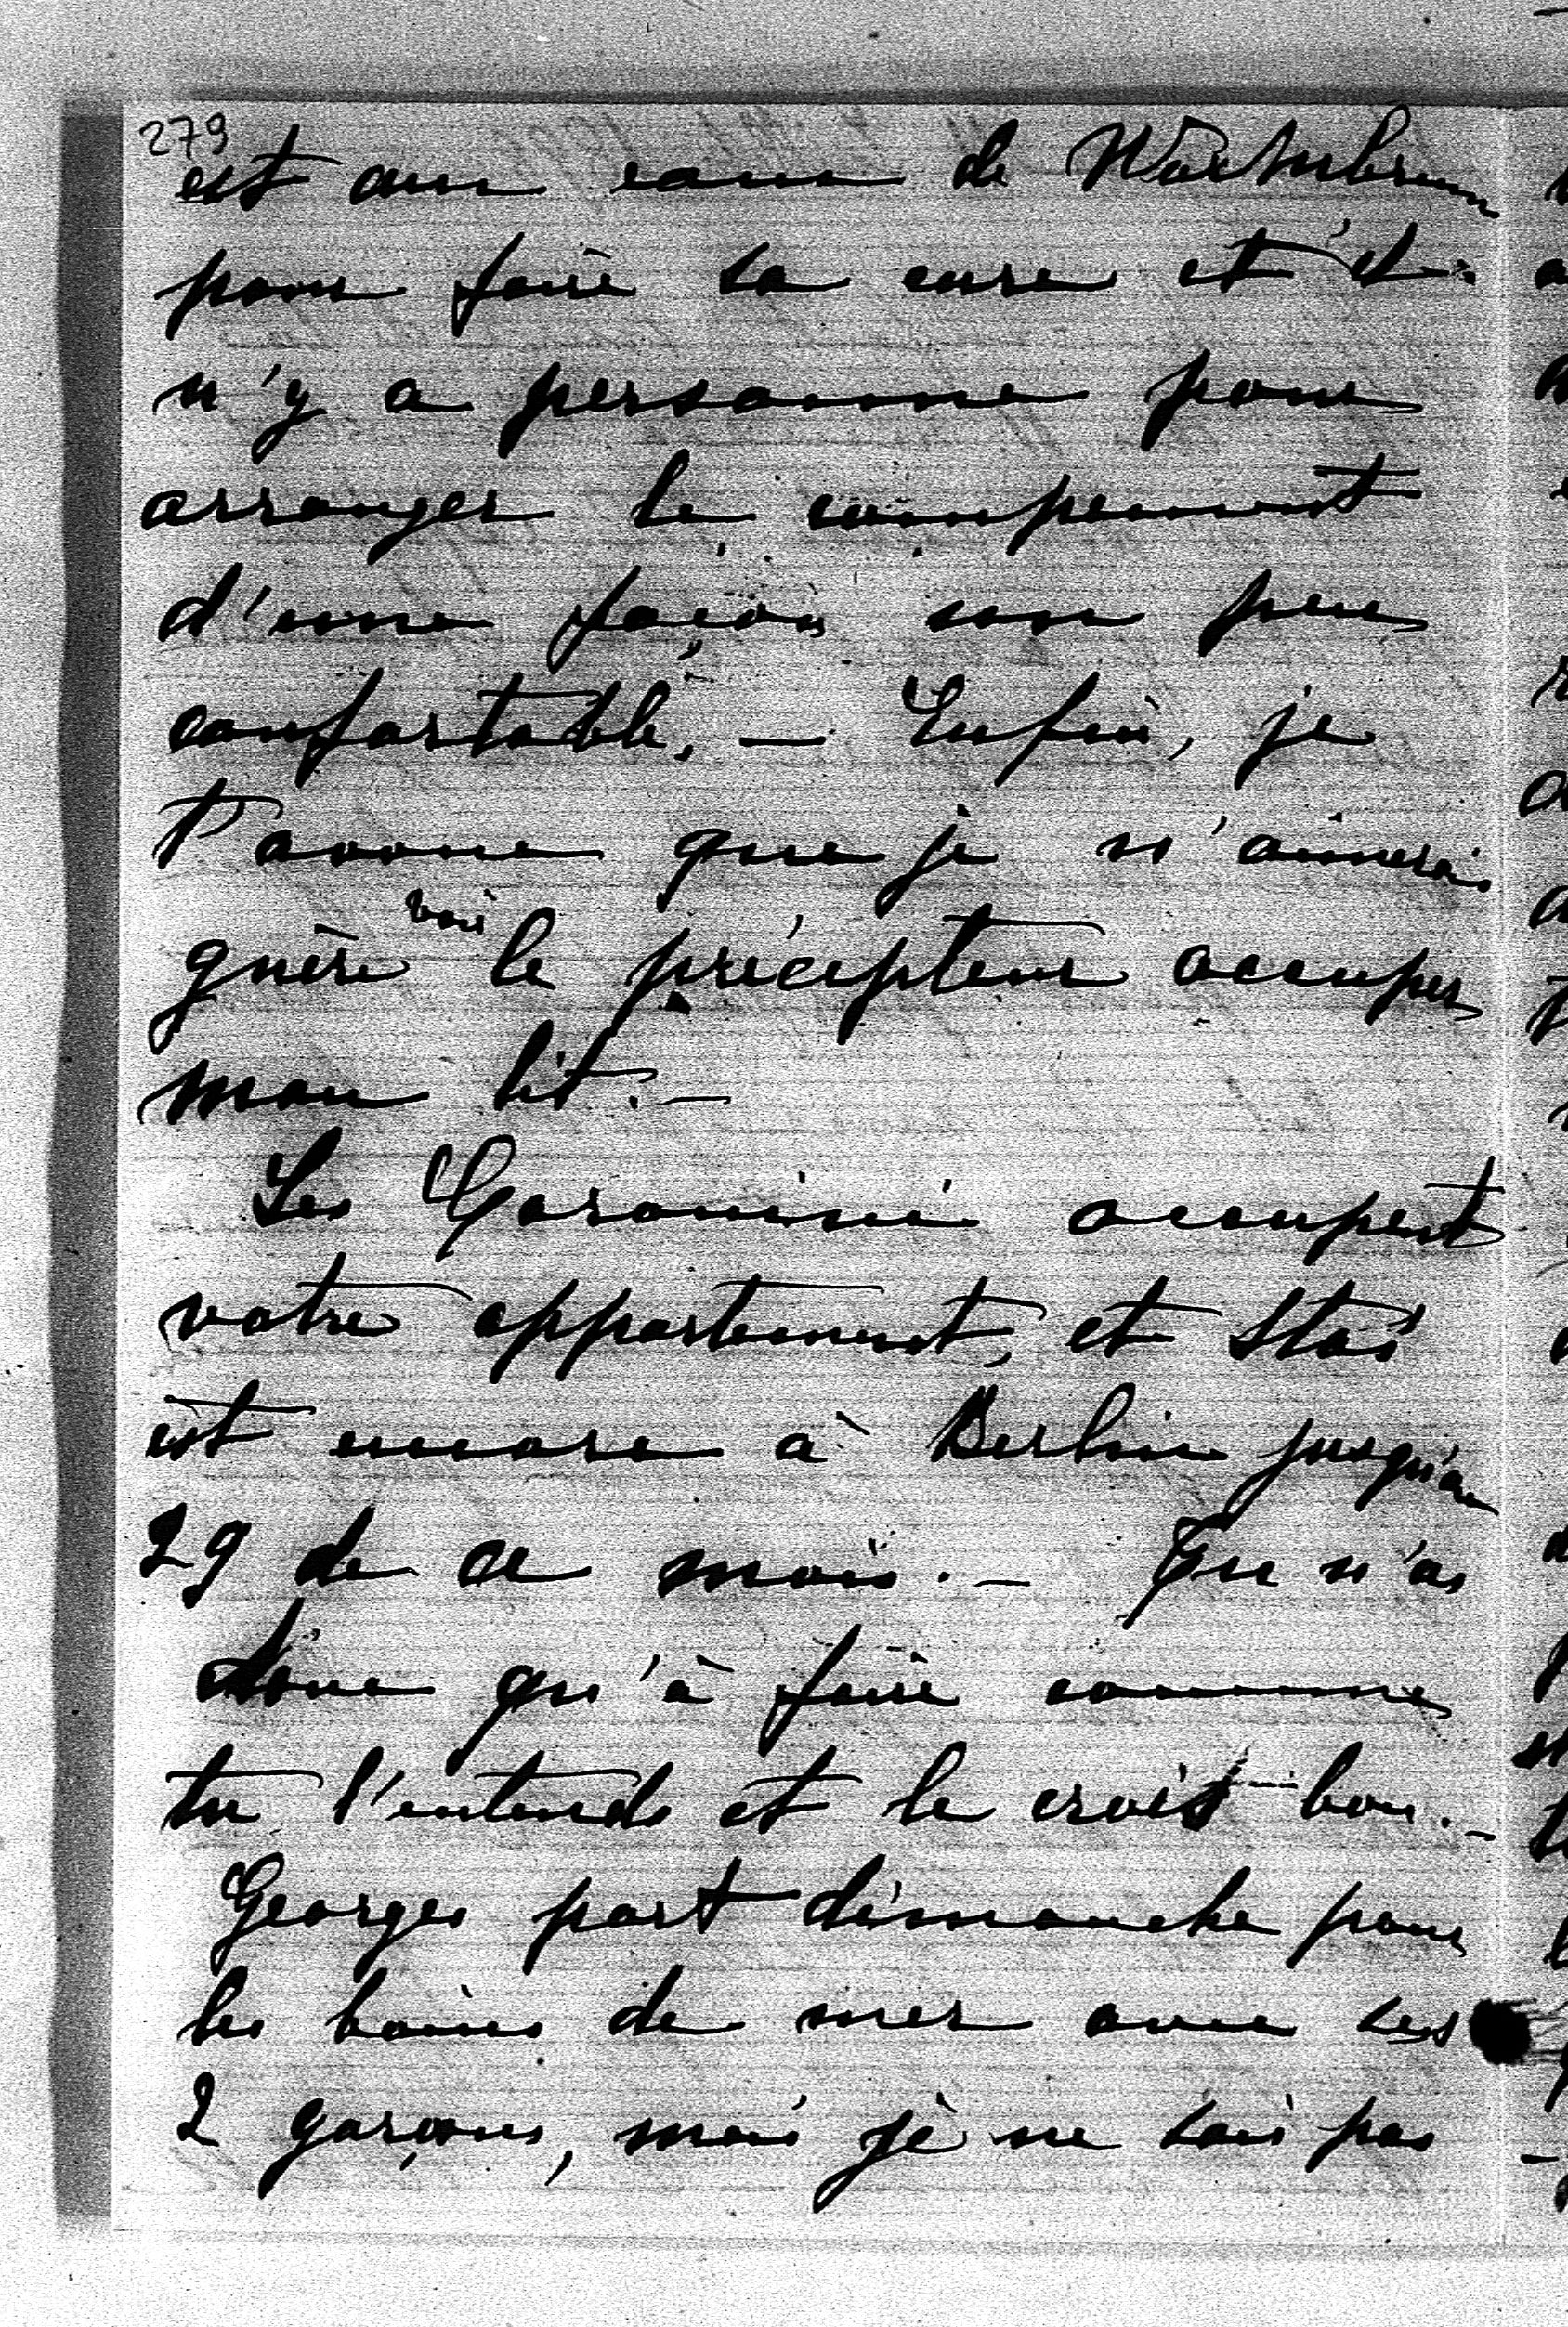 279
est aux eaux de Warmbrun
pour faire sa cure et il
n'y a personne pour
arranger le campement
d'une façon un peu
confortable. — Enfin, je
t'avoue que je n'aimerais
guère voir le précepteur occuper
mon lit. —
Les occupent
votre appartement, et Stas
est encore à Berlin jusqu'au
29 de ce mois. — Tu n'as
donc qu'à faire comme
tu l'entends et le crois bon. —
Georges part dimanche pour
les bains de mer avec ses
2 garçons, mais je ne sais pas